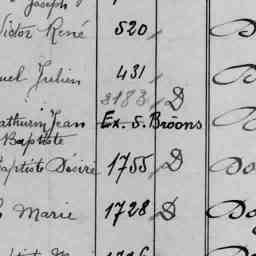 Joseph
Victor René 520
uel Julien 431
2183 D
athurin Jean Ex. S. Broons
Baptiste
aptiste Désiré 1755 D
Marie 1728 D